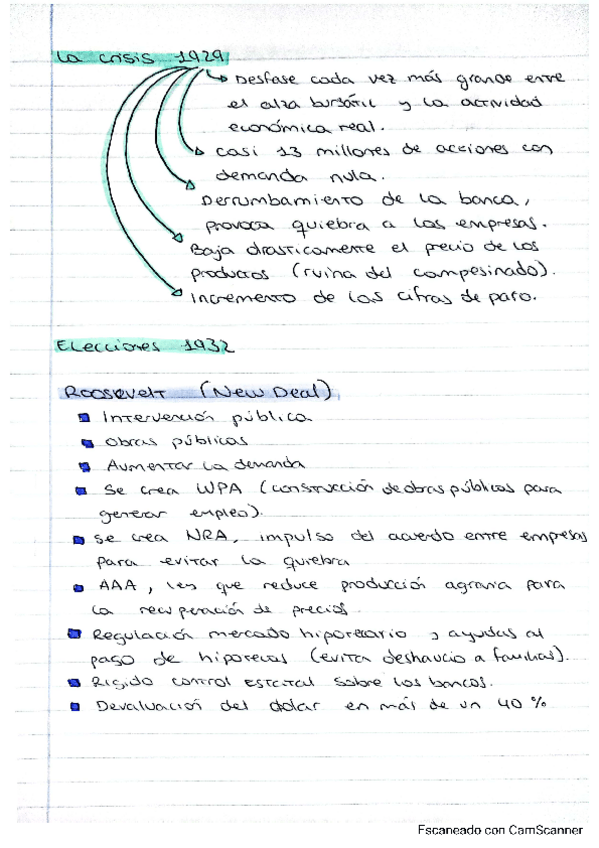 La crisis 1929
Desfase cada vez más grande entre
el alza bursátil y la actividad
económica real.
casi 13 millones de acciones con
demanda nula.
Derrumbamiento de la banca,
provoca quiebra a las empresas.
Baja drásticamente el precio de los
productos (ruina del campesinado).
Incremento de las cifras de paro.
Elecciones 1932
Roosevelt (New Deal)
Intervención pública
Obras públicas
Aumentar la demanda
Se crea WPA (construcción de obras públicas para
generar empleo).
Se crea NRA, impulso del acuerdo entre empresas
para evitar la quiebra
AAA, ley que reduce producción agraria para
la recuperación de precios.
Regulación mercado hipotecario y ayudas al
pago de hipotecas (evita deshaucio a familias).
Rígido control estatal sobre los bancos.
Devaluación del dolar en más de un 40%
Escaneado con CamScanner